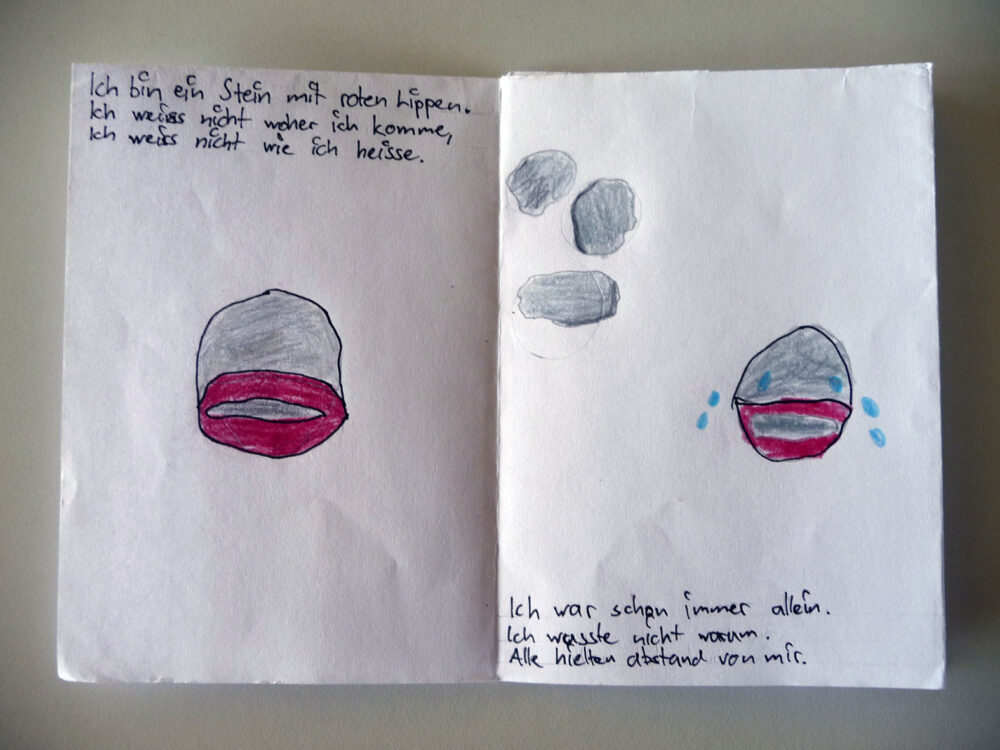 Ich bin ein Stein mit roten Lippen.
Ich weiss nicht woher ich komme,
Ich weiss nicht wie ich heisse.
Ich war schon immer allein.
Ich wusste nicht warum.
Alle hielten abstand von mir.